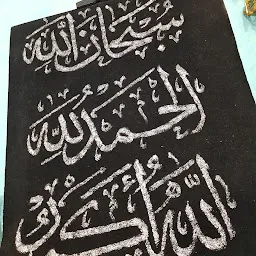 سُبْحَانَ اللّٰه
الحَمْدُ لِلّٰه
اللّٰهُ أَكْبَرُ